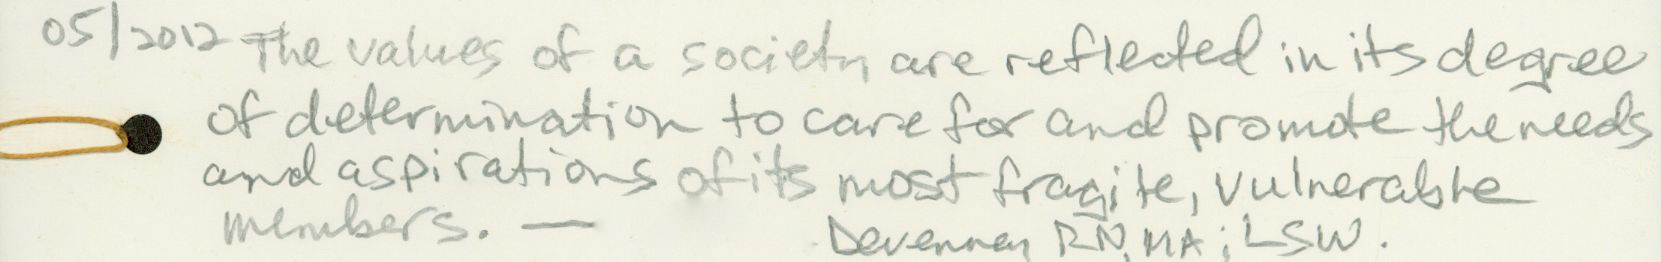 05/2012 The values of a society are reflected in its degree
of determination to care for and promote the needs
and aspirations of its most fragile, vulnerable
members. —
Devenney RN, MA; LSW.